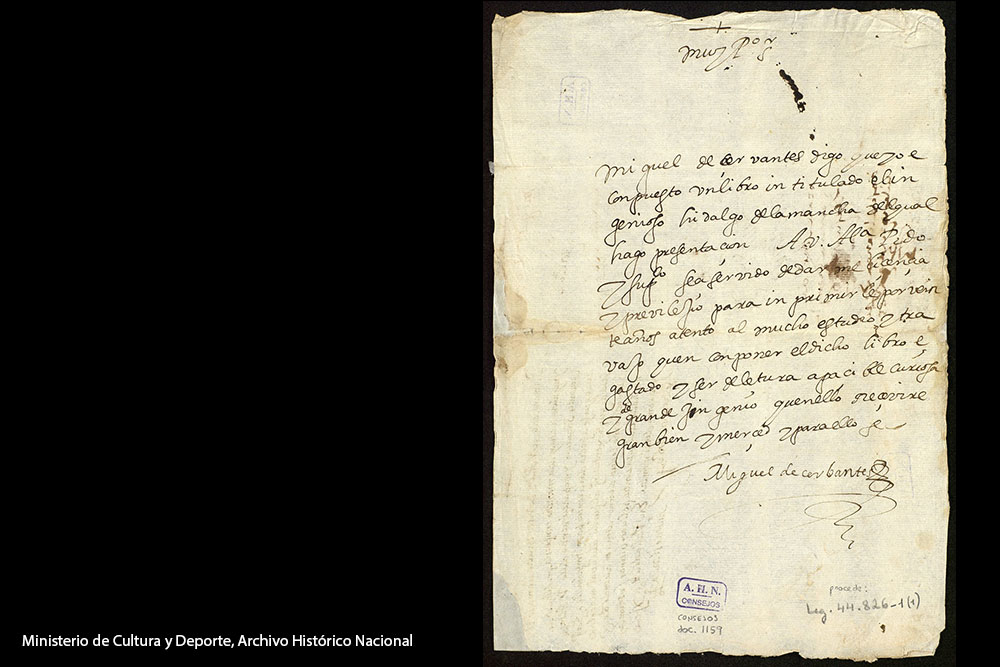 muy P.or s
Miguel de cervantes digo que yo e
conpuesto un libro intitulado el in
genioso hidalgo de la mancha del qual
hago presentacion A. V. Alª Pido
y supco sea servido de darme licencia
y previlejio para inprimirle por vein
te años atento al mucho estudio y tra
vajo quen conponer el dicho libro e
gastado y ser de letura apacible curiosa
y de grande ingenio quenello recevire
gran bien y merced y para ello &
Miguel de cerbantes
A. H. N.
CONSEJOS
CONSEJOS
doc. 1159
procede:
Leg. 44.826-1(1)
Ministerio de Cultura y Deporte, Archivo Histórico Nacional